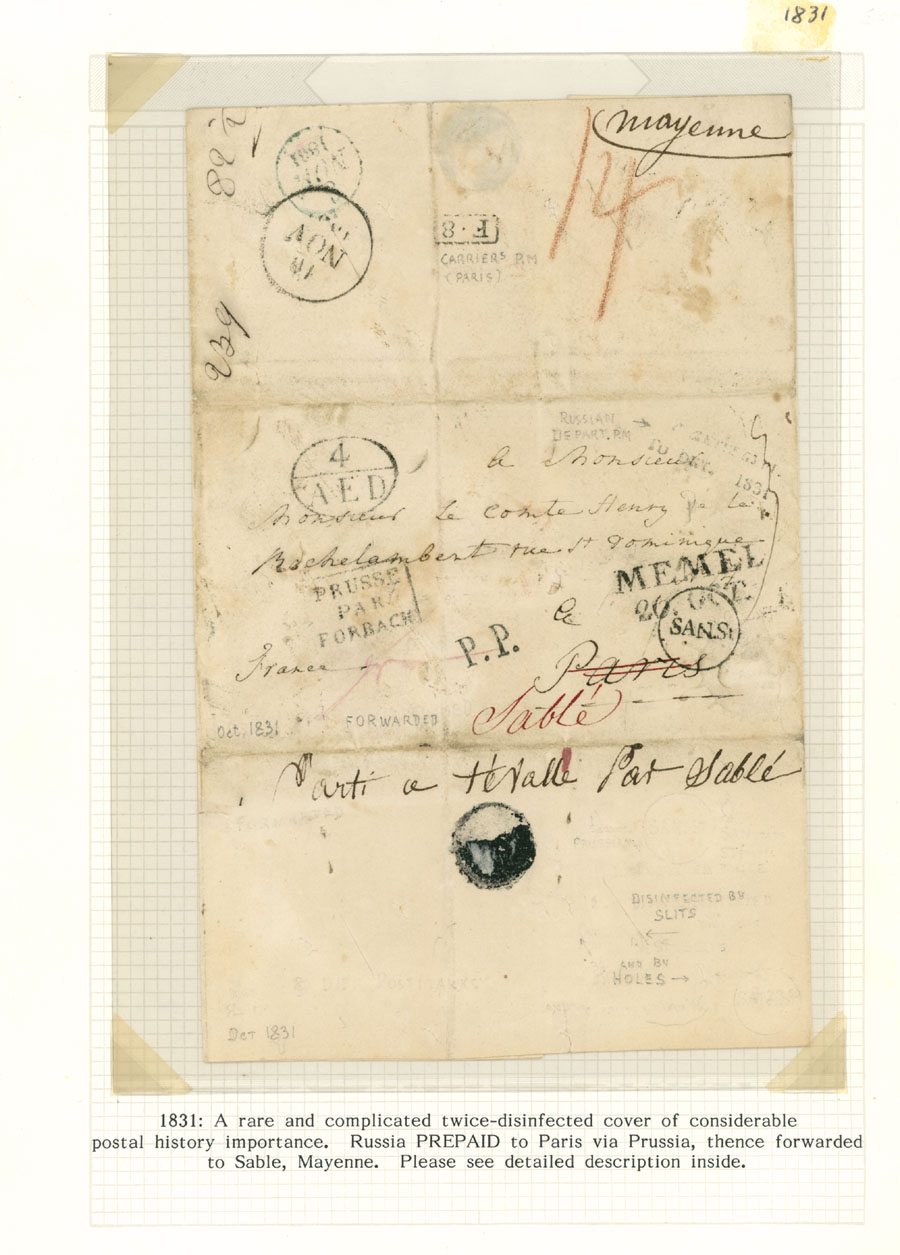 1831
mayenne
14
82 1/2
1831
NOV
NOV
F·8
CARRIERS PM
(PARIS)
239
RUSSIAN
DEPART. PM
4
AED
1831
a Monsieur
Monsieur le comte Henry de la
Rochelambert rue St Dominique
MEMEL
20. OCT.
SANS:
PRUSSE
PAR
FORBACH
a
P.P.
Paris
France
Sablé
Oct. 1831
FORWARDED
Parti a tévallé Par Sablé
FORWARDED
DISINFECTED BY
SLITS
AND BY
HOLES →
POSTMARKS
Oct 1831
1831: A rare and complicated twice-disinfected cover of considerable
postal history importance. Russia PREPAID to Paris via Prussia, thence forwarded
to Sable, Mayenne. Please see detailed description inside.